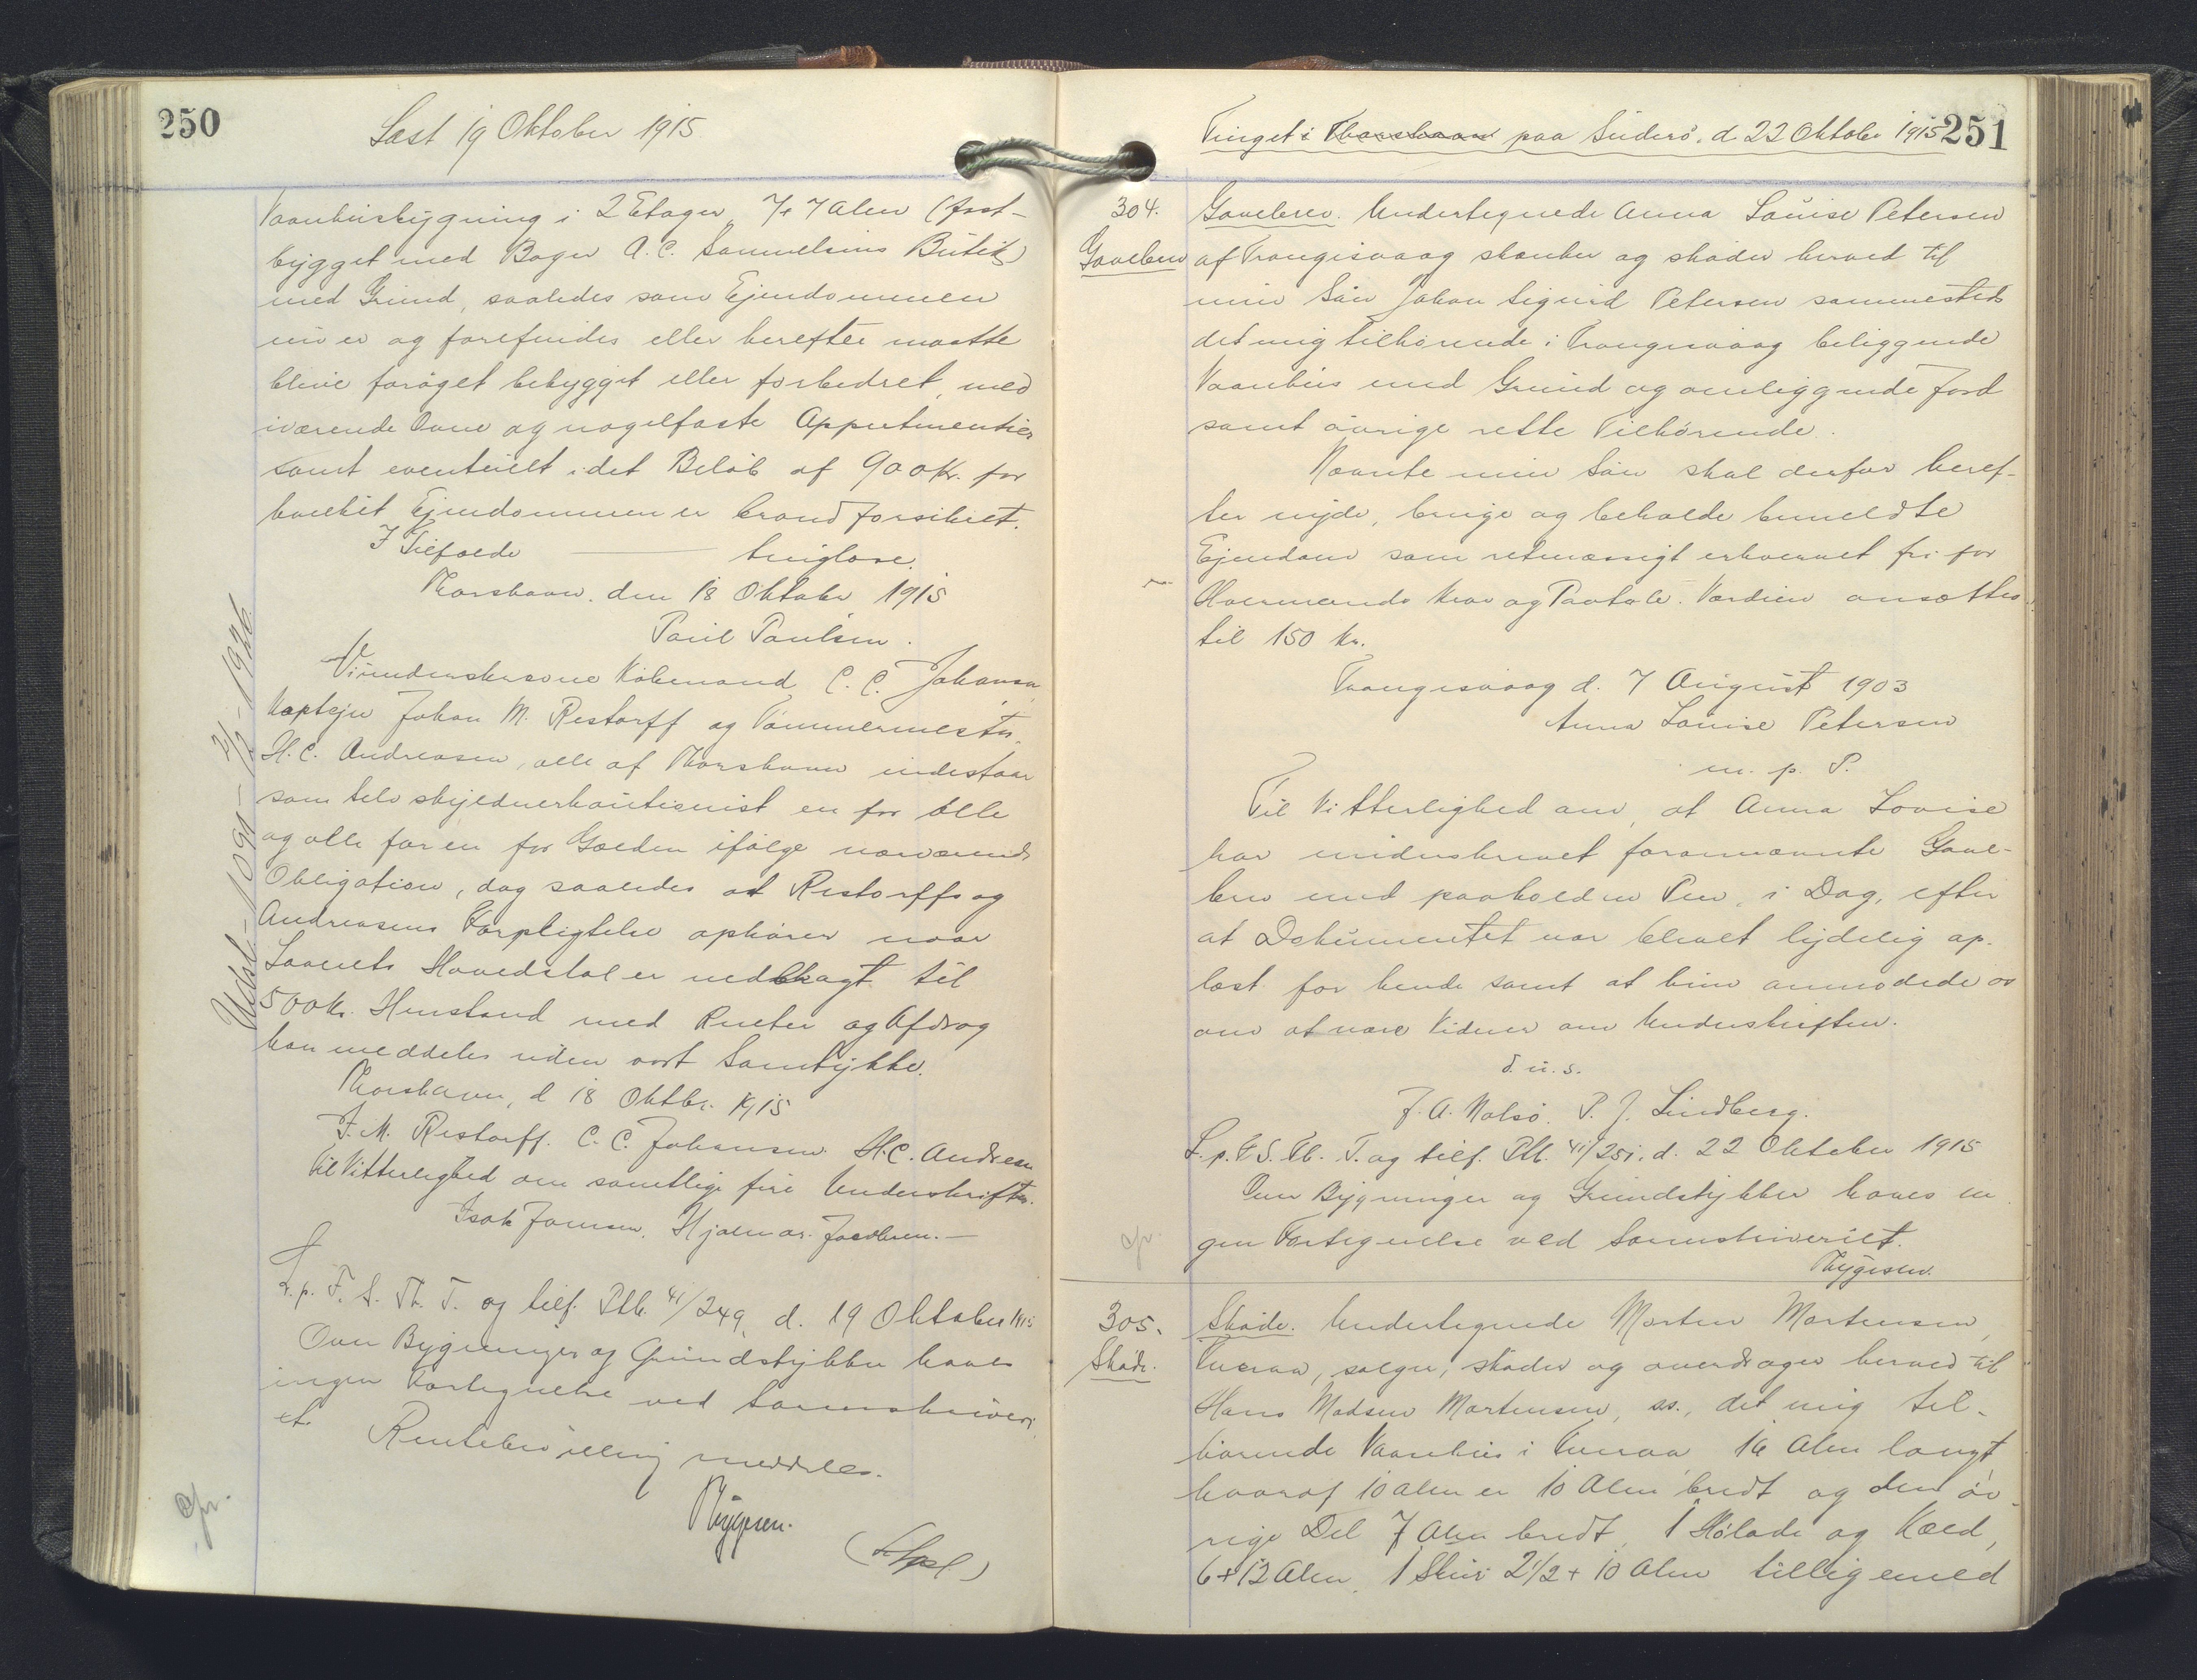 250
Læst 19 Oktober 1915
Vaanhusbygning i 2 Etager, 7 + 7 Alen (fast-
bygget med Bager A. C. Samuelsens Butik)
med Grund, saaledes som Ejendommen
nu er og forefindes eller herefter maatte
blive forøget bebygget eller forbedret, med
iværende Ovne og nagelfaste Appertinentier
samt eventuelt i det Beløb af 900 Kr. for
hvilket Ejendommen er brandforsikret.
I Tilfælde — tinglæse.
Thorshavn, den 18 Oktober 1915
Paul Paulsen.
Vi underskrevne Købmand C. C. Johansen
Kaptejn Johan M. Restorff og Tømmermester
H. C. Andreasen, alle af Thorshavn indestaar
som selvskyldnerkautionist en for alle
og alle for en for Gælden ifølge nærværende
Obligation, dog saaledes at Restorffs og
Andreasens Forpligtelse ophører naar
Laanets Hovedstol er nedbragt til
500 Kr. Henstand med Renter og Afdrag
kan meddeles uden vort Samtykke.
Thorshavn, d 18 Oktbr. 1915
J. M. Restorff. C. C. Johansen. H. C. Andreasen
Til Vitterlighed om samtlige fire Underskrifter.
Isak Jensen, Hjalmar Jacobsen.—
L. p. F. S. Th. T. og tilf. Ptb. 41/249, d. 19 Oktober 1915
Over Bygninger og Grundstykker haves
ingen Fortegnelse ved Sorenskriveri
et. Rentebevilling meddeles.
Thygesen.
Udsl. - 1091 - 1926
Tinget i Thorshavn paa Suderø, d. 22 Oktober 1915
251
304.
Gavebrev
Gavebrev. Undertegnede Anna Louise Petersen
af Trangisvaag skænker og skøder herved til
min Søn Johan Sigurd Petersen sammesteds
det mig tilhørende i Trangisvaag beliggende
Vaanhus med Grund og omliggende Jord
samt øvrige rette Tilhørende.
Nævnte min Søn skal derfor heref-
ter nyde, bruge og beholde bemeldte
Ejendom som retmæssigt erhvervet fri for
Hvermands Krav og Paatale. Værdien ansættes
til 150 Kr.
Trangisvaag d. 7 August 1903
Anna Louise Petersen
m. p. P.
Til Vitterlighed om, at Anna Lovise
har underskrevet forannævnte Gave-
brev med paaholden Pen, i Dag, efter
at Dokumentet var blevet lydelig op-
læst for hende samt at hun anmodede os
om at være Vidner om Underskriften.
d. u. s.
J. A. Nolsø. P. J. Lindberg.
L. p. F. S. Tb. T. og tilf. Ptb. 41/251. d. 22 Oktober 1915
Over Bygninger og Grundstykker haves in
gen Fortegnelse ved Sorenskriveriet.
Thygesen.
305.
Skøde.
Skøde. Undertegnede Morten Mortensen,
Kueraa, sælger, skøder og overdrager herved til
Hans Madsen Mortensen, ss., det mig til-
hørende Vaanhus i Kueraa 16 Alen langt
hvoraf 10 Alen er 10 Alen bredt og den øv-
rige Del 7 Alen bredt, 1 Hølade og Kæld,
6 + 12 Alen, 1 Skur 2 1/2 + 10 Alen tilligemed